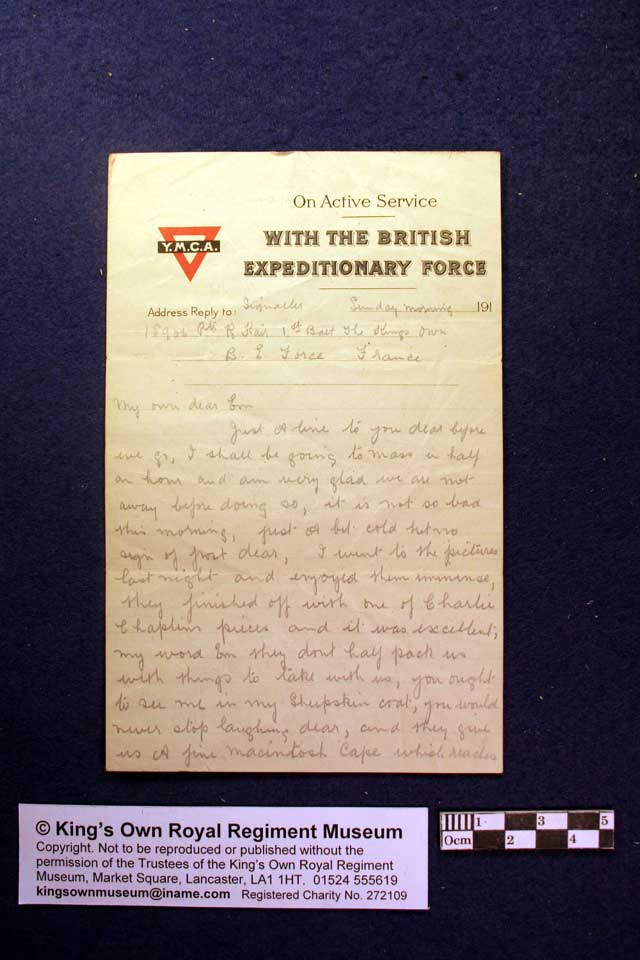 On Active Service
Y.M.C.A.
WITH THE BRITISH
EXPEDITIONARY FORCE
Address Reply to: Signaller Sunday morning 191
Pte R 1st Batt The Kings Own
B. E Force France
My own dear Em
Just A line to you dear before
we go, I shall be going to mass in half
an hour and am very glad we are not
away before doing so, it is not so bad
this morning, just A bit cold but no
sign of frost dear, I went to the pictures
last night and enjoyed them immense,
they finished off with one of Charlie
Chaplins pieces and it was excellent,
my word Em they dont half pack us
with things to take with us, you ought
to see me in my Sheepskin coat, you would
never stop laughing dear, and they give
us A fine macintosh Cape which reaches
© King's Own Royal Regiment Museum
Copyright. Not to be reproduced or published without the
permission of the Trustees of the King's Own Royal Regiment
Museum, Market Square, Lancaster, LA1 1HT. 01524 555619
kingsownmuseum@iname.com Registered Charity No. 272109
0cm 1 2 3 4 5